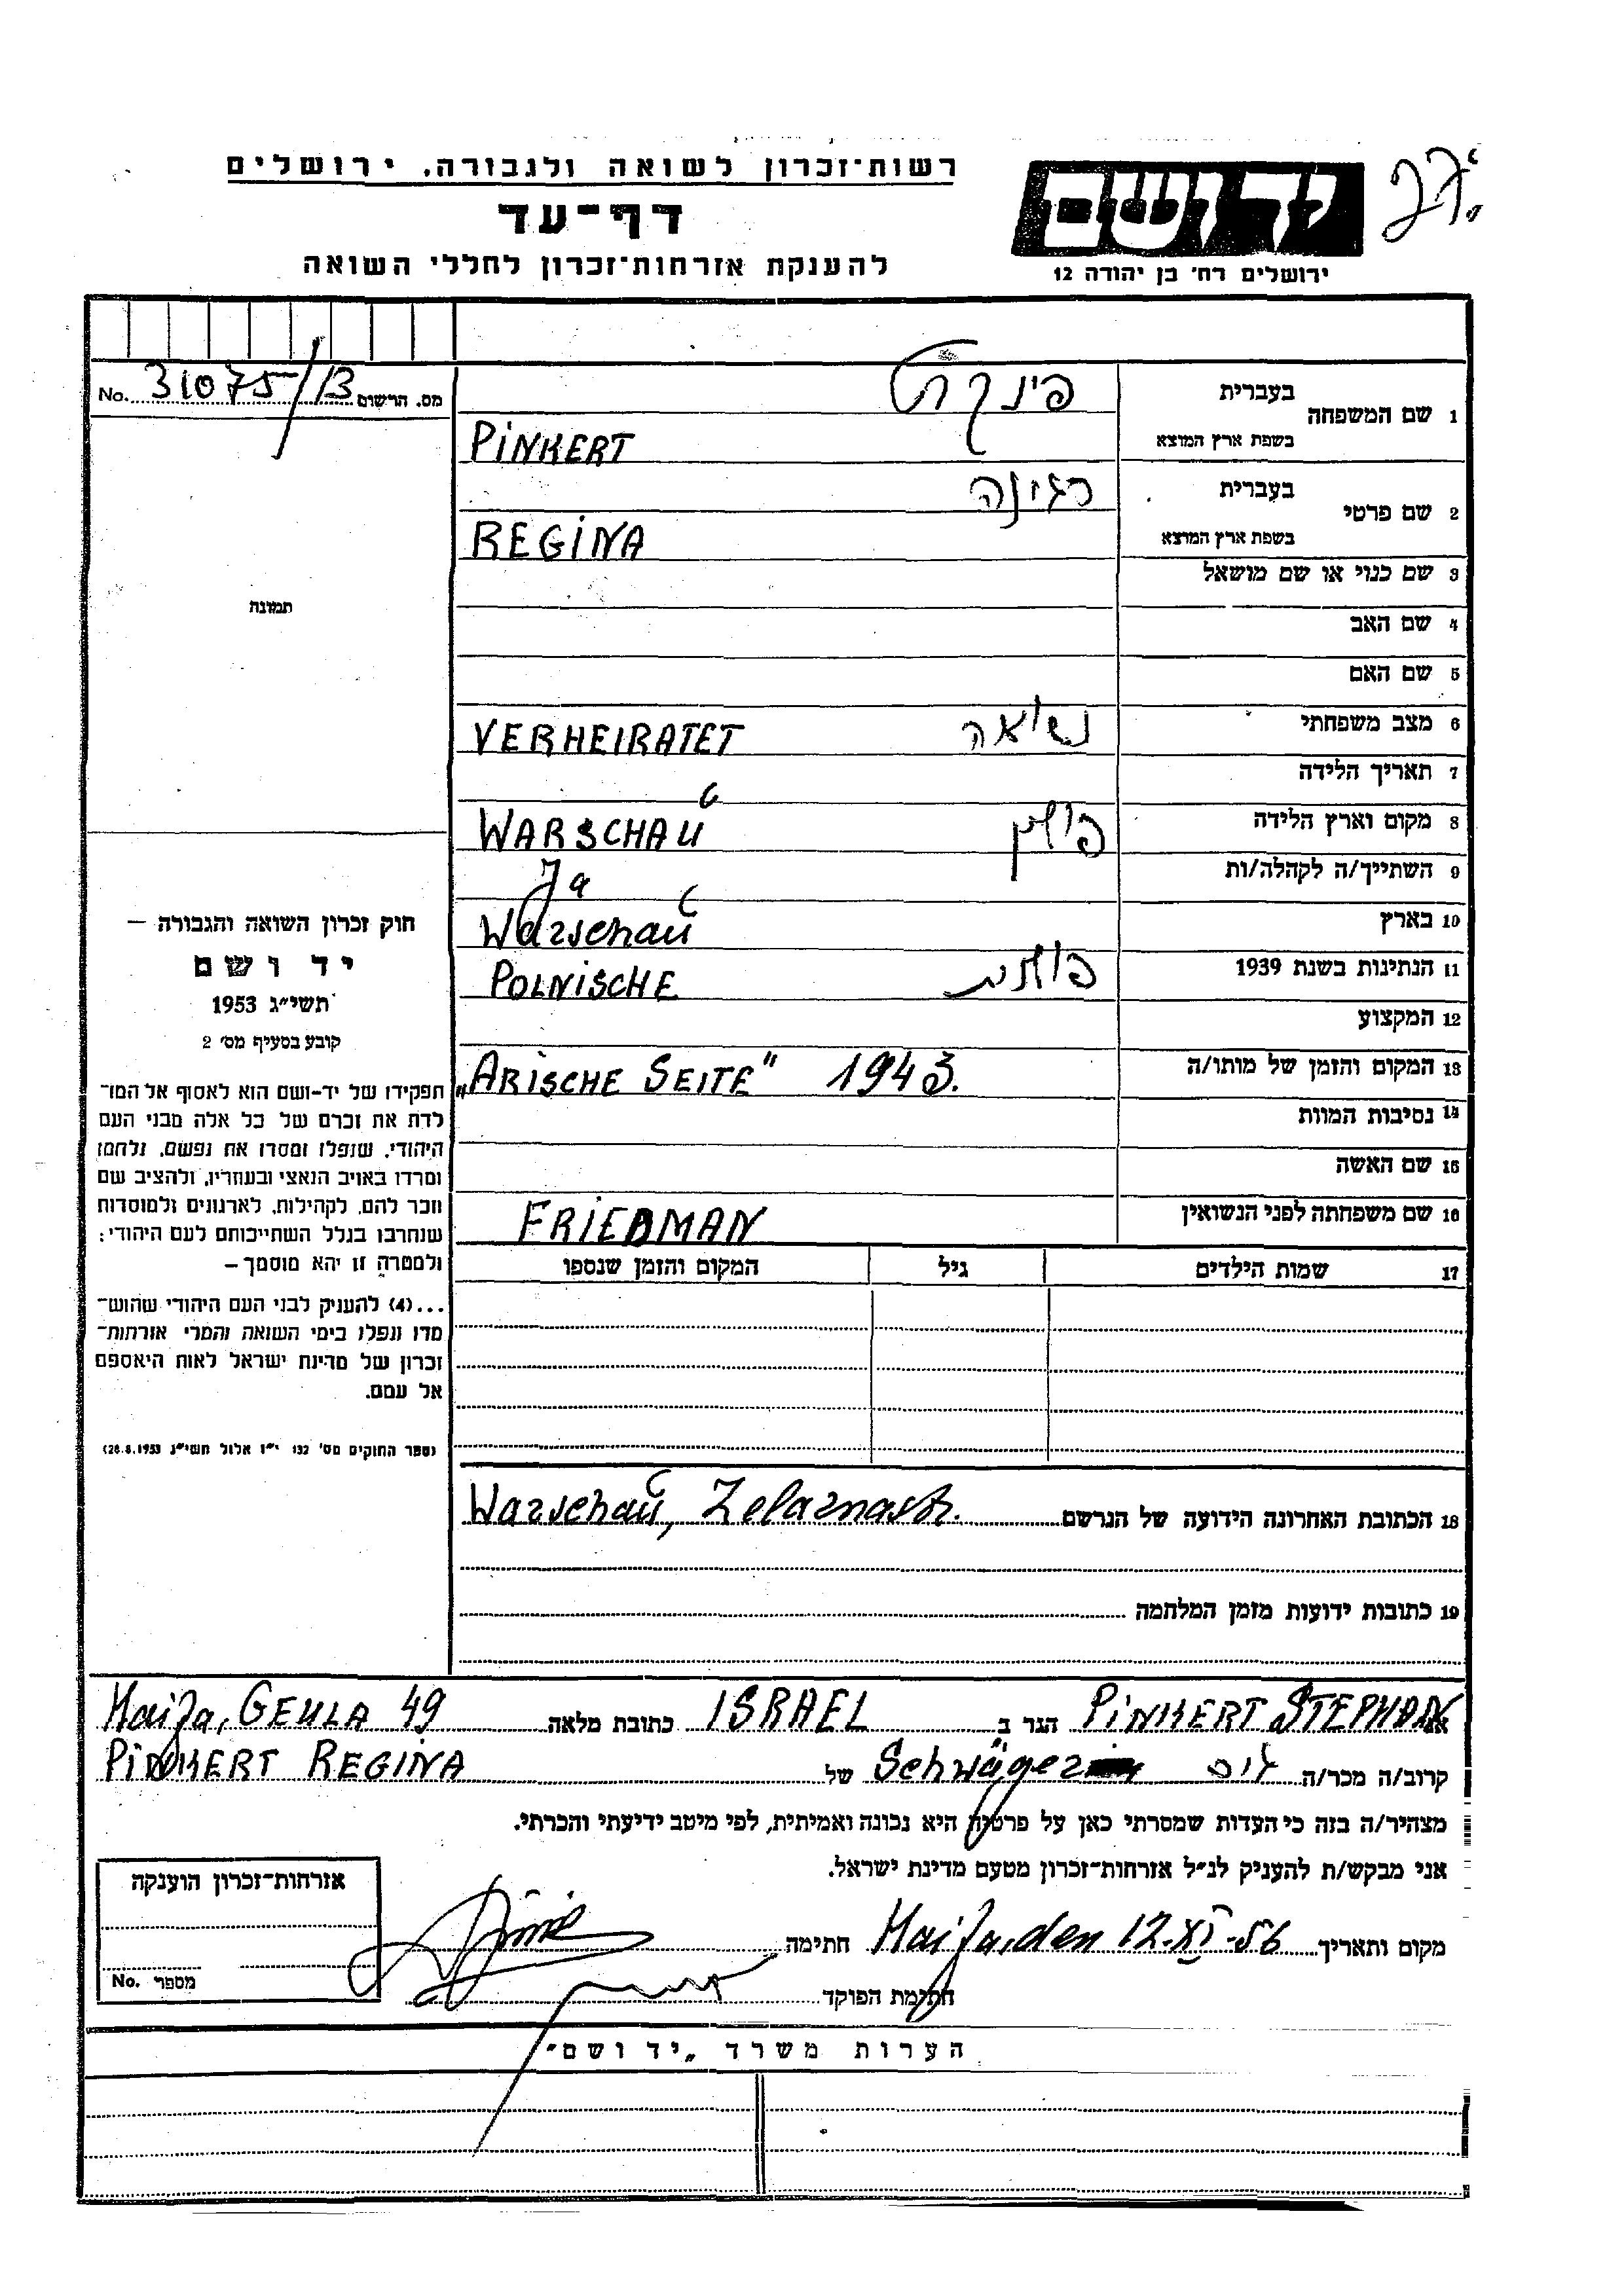 רשות־זכרון לשואה ולגבורה, ירושלים
דף־עד
להענקת אזרחות־זכרון לחללי השואה
יד ושם
ירושלים רח׳ בן יהודה 12
מס. הרשום 31075/B No.
1 שם המשפחה
בעברית פינקרט
בשפת ארץ המוצא PINKERT
2 שם פרטי
בעברית רגינה
בשפת ארץ המוצא REGINA
3 שם כנוי או שם מושאל
4 שם האב
5 שם האם
6 מצב משפחתי נשואה VERHEIRATET
7 תאריך הלידה
8 מקום וארץ הלידה פולין WARSCHAU
9 השתייך/ה לקהלה/ות Ja
10 בארץ Warschau
11 הנתינות בשנת 1939 פולנית POLNISCHE
12 המקצוע
13 המקום והזמן של מותו/ה „ARISCHE SEITE" 1943.
14 נסיבות המוות
15 שם האשה
16 שם משפחתה לפני הנשואין FRIEDMAN
17 שמות הילדים גיל המקום והזמן שנספו
18 הכתובת האחרונה הידועה של הנרשם Warschau, Zelaznastr.
19 כתובות ידועות מזמן המלחמה
תמונה
חוק זכרון השואה והגבורה –
יד ושם
תשי״ג 1953
קובע בסעיף מס׳ 2
תפקידו של יד-ושם הוא לאסוף אל המו־
לדת את זכרם של כל אלה מבני העם
היהודי, שנפלו ומסרו את נפשם, נלחמו
ומרדו באויב הנאצי ובעוזריו, ולהציב שם
וזכר להם, לקהילות, לארגונים ולמוסדות
שנחרבו בגלל השתייכותם לעם היהודי;
ולמטרה זו יהא מוסמך –
...(4) להעניק לבני העם היהודי שהוש־
מדו ונפלו בימי השואה והמרי אזרחות־
זכרון של מדינת ישראל לאות היאספם
אל עמם.
(ספר החוקים מס׳ 132 י״ז אלול תשי״ג 28.8.1953)
אני PINKERT STEPHAN הגר ב ISRAEL כתובת מלאה Haifa, GEULA 49
קרוב/ה מכר/ה גיס Schwager של PINKERT REGINA
מצהיר/ה בזה כי העדות שמסרתי כאן על פרטיה היא נכונה ואמיתית, לפי מיטב ידיעתי והכרתי.
אני מבקש/ת להעניק לנ״ל אזרחות־זכרון מטעם מדינת ישראל.
מקום ותאריך Haifa, den 12.XI.56 חתימה
חתימת הפוקד
אזרחות־זכרון הוענקה
מספר No.
הערות משרד „יד ושם״